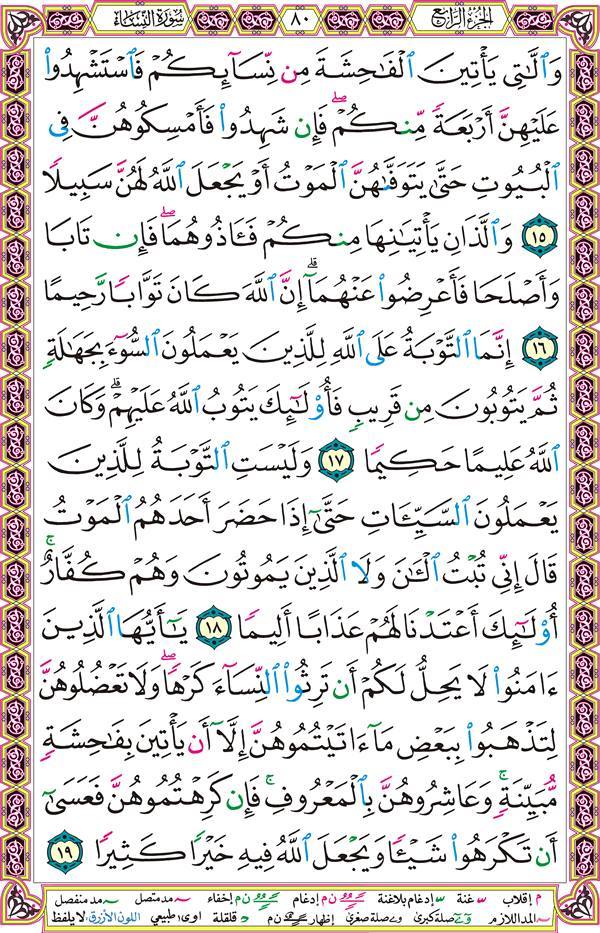 الجزء الرابع ٨٠ سورة النساء
وَٱلَّٰتِى يَأۡتِينَ ٱلۡفَٰحِشَةَ مِن نِّسَآئِكُمۡ فَٱسۡتَشۡهِدُواْ
عَلَيۡهِنَّ أَرۡبَعَةً مِّنكُمۡۖ فَإِن شَهِدُواْ فَأَمۡسِكُوهُنَّ فِى
ٱلۡبُيُوتِ حَتَّىٰ يَتَوَفَّىٰهُنَّ ٱلۡمَوۡتُ أَوۡ يَجۡعَلَ ٱللَّهُ لَهُنَّ سَبِيلًا
١٥ وَٱلَّذَانِ يَأۡتِيَٰنِهَا مِنكُمۡ فَـَٔاذُوهُمَاۖ فَإِن تَابَا
وَأَصۡلَحَا فَأَعۡرِضُواْ عَنۡهُمَآۗ إِنَّ ٱللَّهَ كَانَ تَوَّابًا رَّحِيمًا
١٦ إِنَّمَا ٱلتَّوۡبَةُ عَلَى ٱللَّهِ لِلَّذِينَ يَعۡمَلُونَ ٱلسُّوٓءَ بِجَهَٰلَةٍ
ثُمَّ يَتُوبُونَ مِن قَرِيبٍ فَأُوْلَٰٓئِكَ يَتُوبُ ٱللَّهُ عَلَيۡهِمۡۗ وَكَانَ
ٱللَّهُ عَلِيمًا حَكِيمًا ١٧ وَلَيۡسَتِ ٱلتَّوۡبَةُ لِلَّذِينَ
يَعۡمَلُونَ ٱلسَّيِّـَٔاتِ حَتَّىٰٓ إِذَا حَضَرَ أَحَدَهُمُ ٱلۡمَوۡتُ
قَالَ إِنِّى تُبۡتُ ٱلۡـَٰٔنَ وَلَا ٱلَّذِينَ يَمُوتُونَ وَهُمۡ كُفَّارٌۚ
أُوْلَٰٓئِكَ أَعۡتَدۡنَا لَهُمۡ عَذَابًا أَلِيمًا ١٨ يَٰٓأَيُّهَا ٱلَّذِينَ
ءَامَنُواْ لَا يَحِلُّ لَكُمۡ أَن تَرِثُواْ ٱلنِّسَآءَ كَرۡهًاۖ وَلَا تَعۡضُلُوهُنَّ
لِتَذۡهَبُواْ بِبَعۡضِ مَآ ءَاتَيۡتُمُوهُنَّ إِلَّآ أَن يَأۡتِينَ بِفَٰحِشَةٍ
مُّبَيِّنَةٍۚ وَعَاشِرُوهُنَّ بِٱلۡمَعۡرُوفِۚ فَإِن كَرِهۡتُمُوهُنَّ فَعَسَىٰٓ
أَن تَكۡرَهُواْ شَيۡـًٔا وَيَجۡعَلَ ٱللَّهُ فِيهِ خَيۡرًا كَثِيرًا ١٩
م إقلاب غنة إدغام بلاغنة ن م إدغام ن م إخفاء مد متصل مد منفصل
المد اللازم صلة كبرى صلة صغرى إظهار ن م قلقلة اوى طبيعي اللون الأزرق لا يلفظ